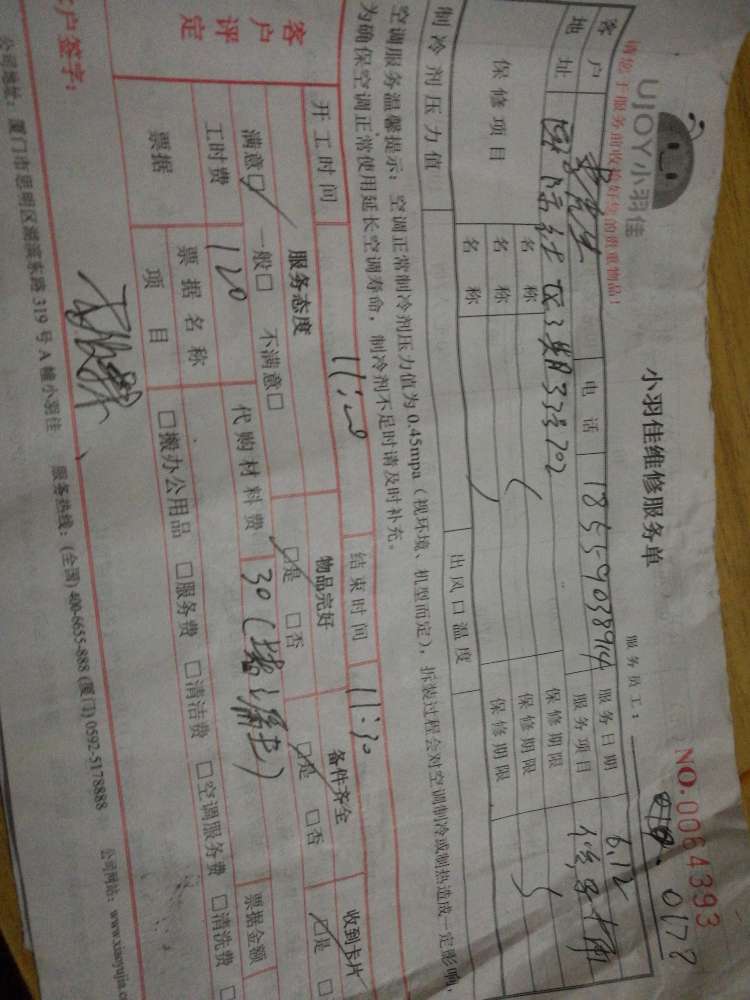 UJOY小羽佳
小羽佳维修服务单
NO.0064393
请您于服务前收检好您的贵重物品!
服务员工: 0178
客户 电话 18559038914 服务日期 6.12
地址 3号702 服务项目
保修项目 名称 保修期限
名称 保修期限
名称 保修期限
制冷剂压力值 出风口温度
空调服务温馨提示: 空调正常制冷剂压力值为0.45mpa(视环境、机型而定), 拆装过程会对空调制冷或制热造成一定影响,
为确保空调正常使用延长空调寿命, 制冷剂不足时请及时补充。
开工时间 11:00 结束时间 11:30
客户评定 服务态度 物品完好 备件齐全 收到卡片
满意□ 一般□ 不满意□ □是 □否 □是 □否 □是
工时费 120 代购材料费 30
票据 票据名称 票据金额
项目 □搬办公用品 □服务费 □清洁费 □空调服务费 □清洗费 □
客户签字:
公司地址: 厦门市思明区湖滨东路319号A幢小羽佳 服务热线: (全国) 400-6655-888 (厦门) 0592-5178888 公司网站: www.xiaoyujia.c